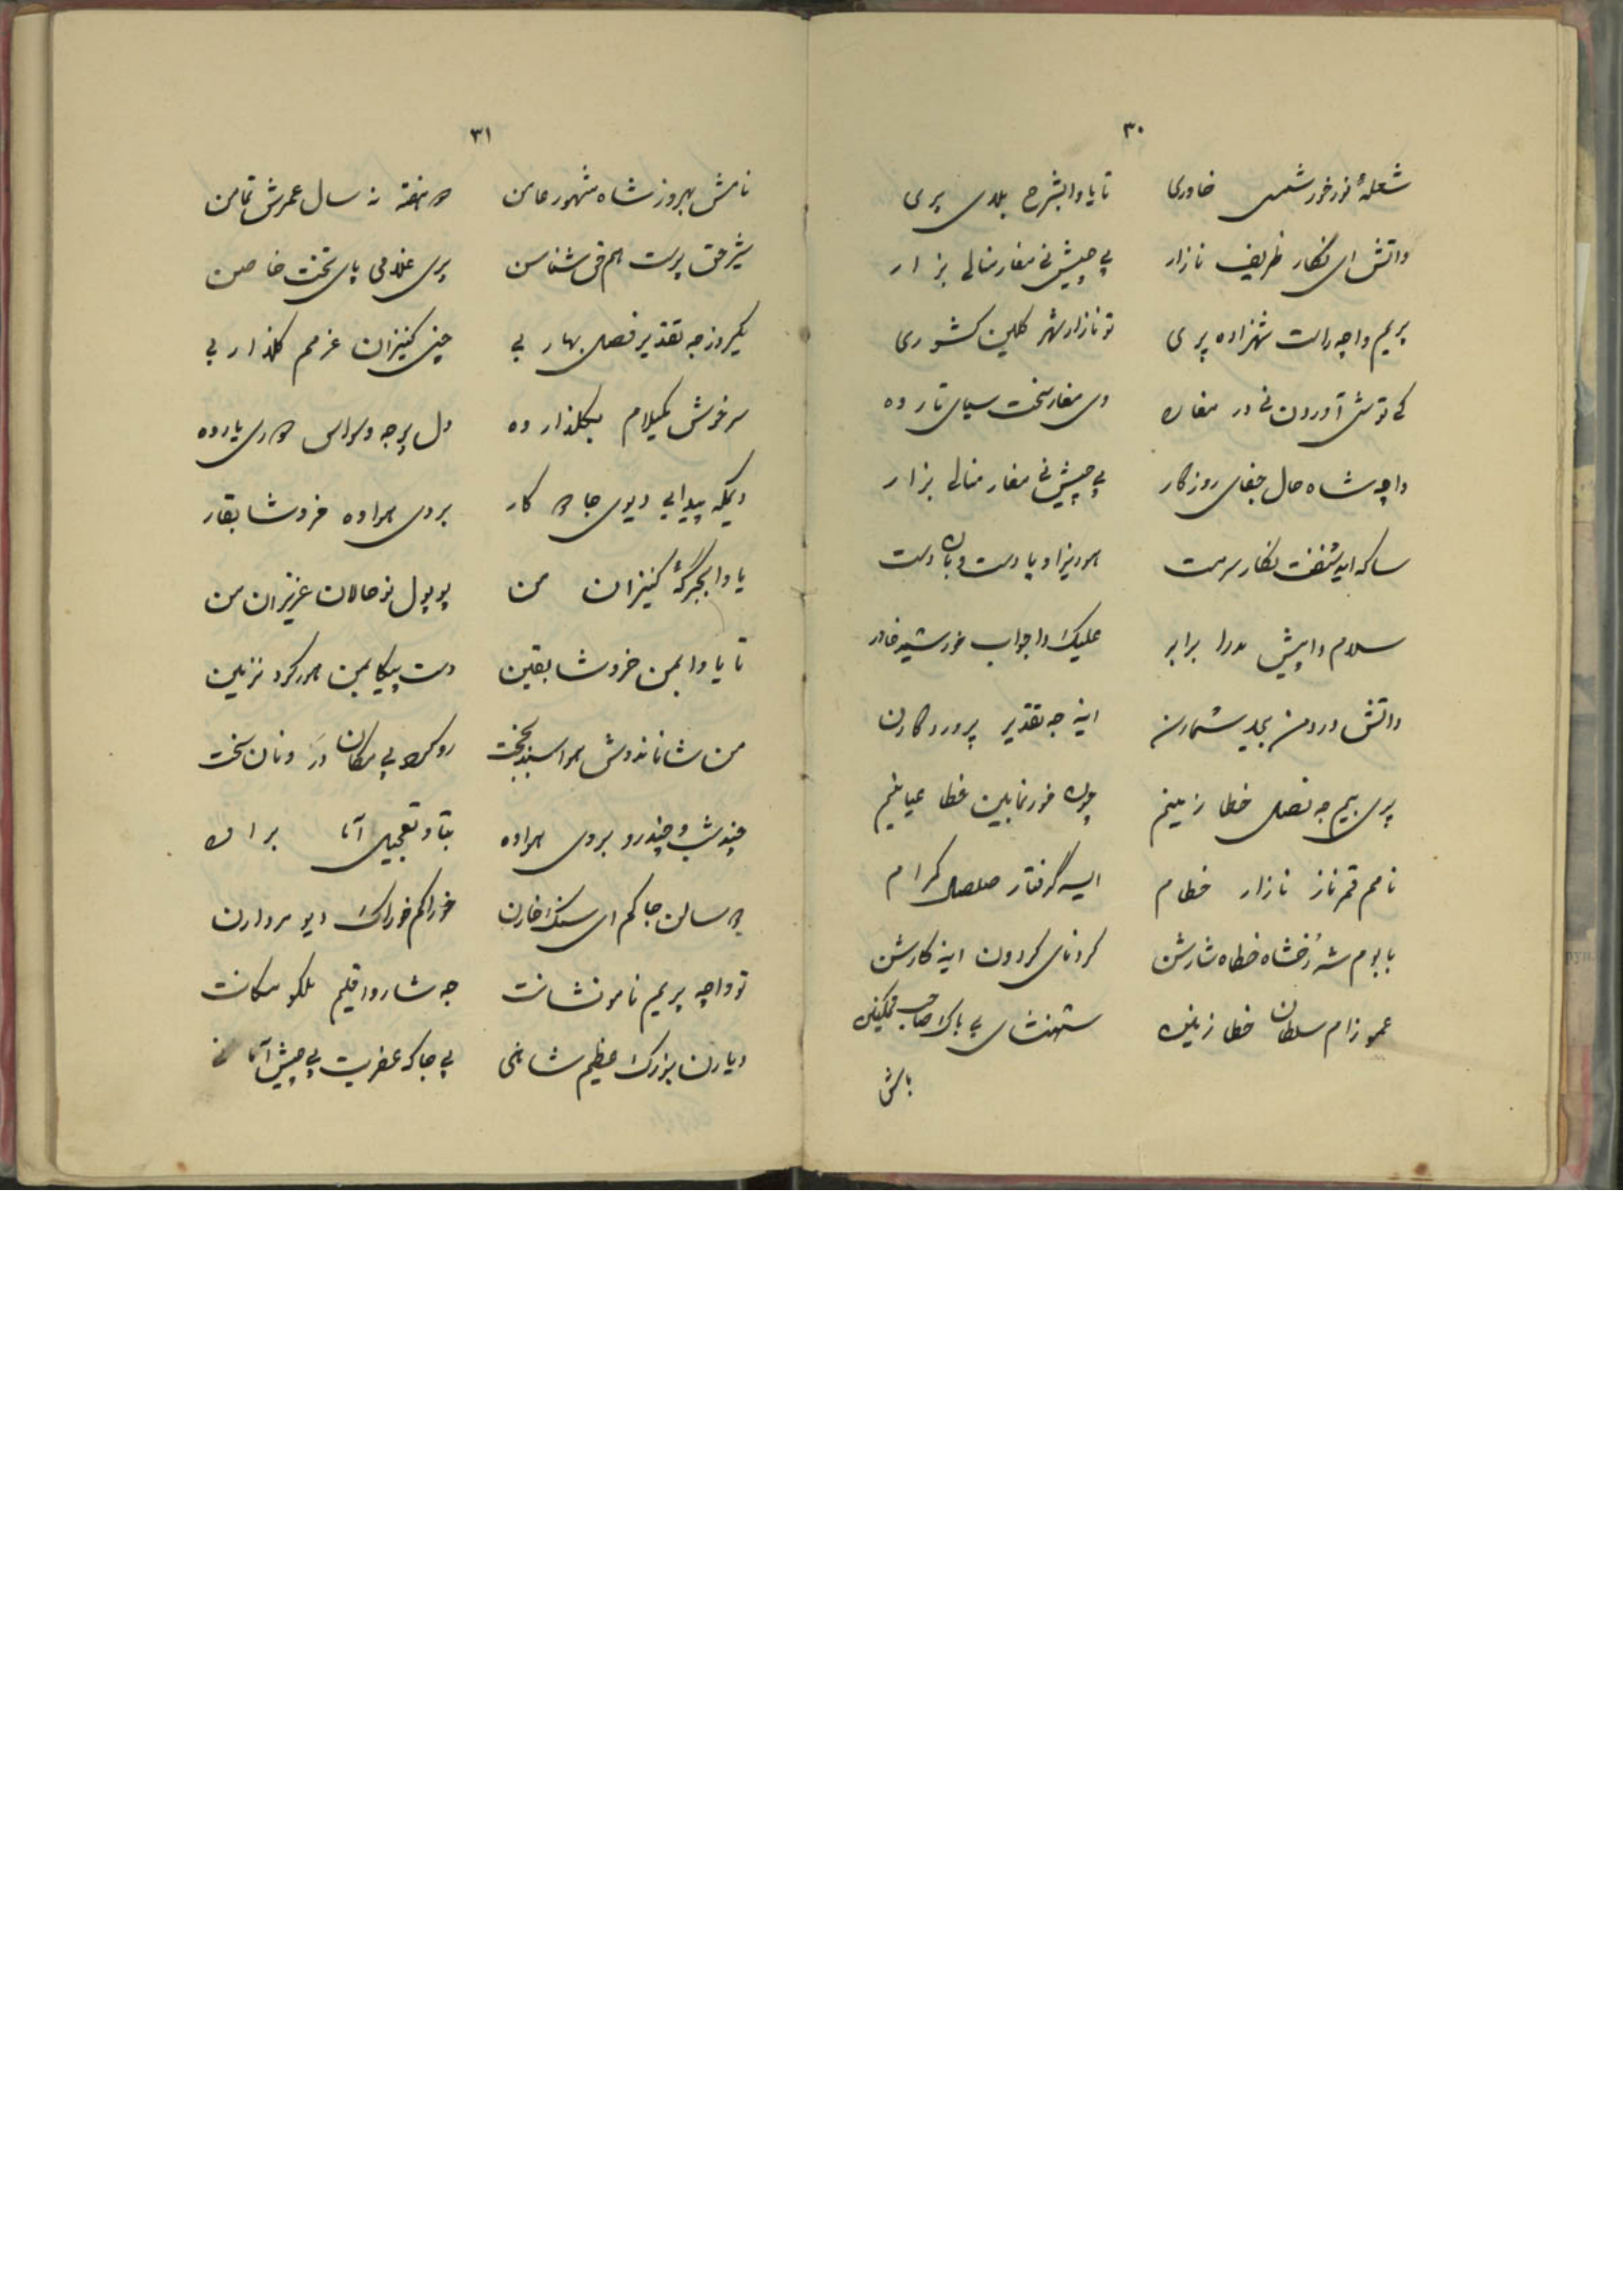 ۳۰
شعلهٔ نور خورشمس خاوری تا یاوا بشرح بلای پری
واتش ای نگار ظریف نازار پی چیش نی مغار منالی بزار
پریم واچه راست شهزاده پری تو نازار شهر کلین کشوری
کی توش آوردن نی در مغاره دی مغار سخت سیای تار ده
واچه شاه حال جفای روزگار پی چیش نی مغار منالی بزار
ساکه اید شنفت نگار سرمست هور یزا و پا دست و بان دست
سلام دا پیش مدرا برابر علیک دا جواب خورشید خاور
واتش دردمن بجلد شمارن اینه جه تقدیر پروردگارن
پری بیم جه نصل خطا زمینم چون خور نمابین خطا عیانیم
نامم قمرناز نازار خطام ایسه گرفتار صلصل کرام
بابوم شه رخشاه خطاه شارشن کردنای کردون اینه کارشن
عموزام سلطان خطا زمینن شهنشای بی باک صاحب تمکینن
باش
۳۱
نامش بهروز شاه مشهور عامن هفته نه سال عمرش تمامن
شیر حق پرست هم حق شناسن پری غلامی پای تخت خاصن
یکروز جه تقدیر فصل بهار بی چنی کنیزان عزمم گلذار بی
سرخوش مکیلام بگلذار ده دل پر جه وسواس دوری یار ده
دیکه پیدا بی دیوی جادوکار بردی هواوه خروشا بقار
یاوا بجرگهٔ کنیزان من پوپول نوحالان عزیزان من
تا یاوا بمن خروشا بقین دست پیکا بمن هورکرد نزمین
من شانا ندوش هواسند بجخت روکرد بی مکان در ونان سخت
چند شب و چند رو بردی هواوه بتاو تعجیل آما براوه
سالن جاکم ای سنک خارن خوراکم خوراک دیو مردارن
تو واچه پریم نام و نشانت جه شار و اقلیم ملکو مکانت
دیارن بزرک عظیم شانی پی جاکه عفریت پی چیش آمانی